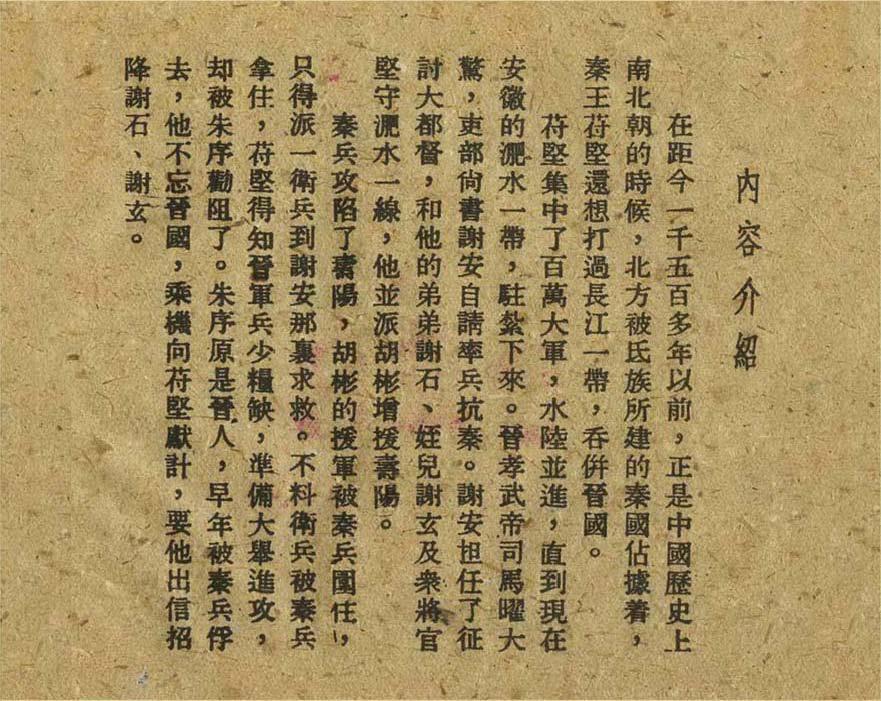 內容介紹
在距今一千五百多年以前，正是中國歷史上
南北朝的時候，北方被氐族所建的秦國佔據着，
秦王苻堅還想打過長江一帶，吞併晉國。
苻堅集中了百萬大軍，水陸並進，直到現在
安徽的淝水一帶，駐紮下來。晉孝武帝司馬曜大
驚，吏部尙書謝安自請率兵抗秦。謝安担任了征
討大都督，和他的弟弟謝石、姪兒謝玄及衆將官
堅守淝水一線，他並派胡彬增援壽陽。
秦兵攻陷了壽陽，胡彬的援軍被秦兵圍住，
只得派一衛兵到謝安那裏求救。不料衛兵被秦兵
拿住，苻堅得知晉軍兵少糧缺，準備大舉進攻，
却被朱序勸阻了。朱序原是晉人，早年被秦兵俘
去，他不忘晉國，乘機向苻堅獻計，要他出信招
降謝石、謝玄。